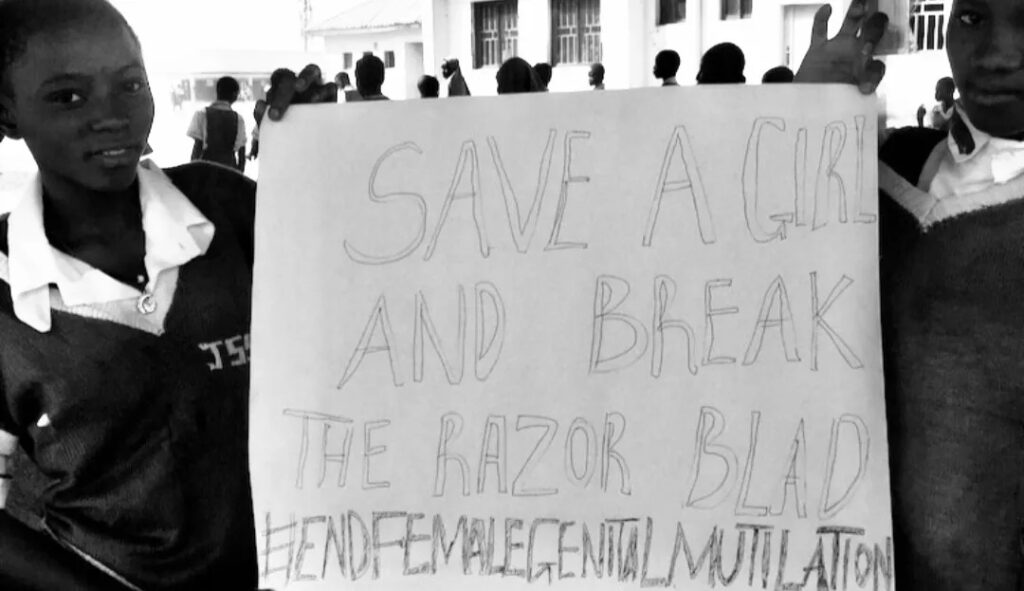 SAVE A GIRL
AND BREAK
THE RAZOR BLAD
#ENDFEMALEGENITALMUTILATION
JSS